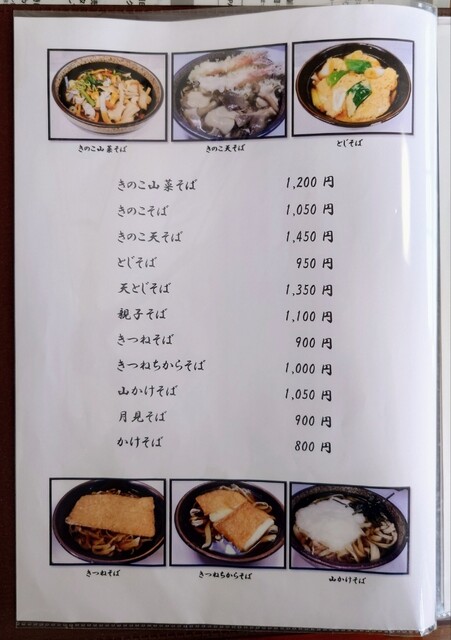 きのこ山菜そば
きのこ天そば
とじそば
きのこ山菜そば 1,200 円
きのこそば 1,050 円
きのこ天そば 1,450 円
とじそば 950 円
天とじそば 1,350 円
親子そば 1,100 円
きつねそば 900 円
きつねちからそば 1,000 円
山かけそば 1,050 円
月見そば 900 円
かけそば 800 円
きつねそば
きつねちからそば
山かけそば